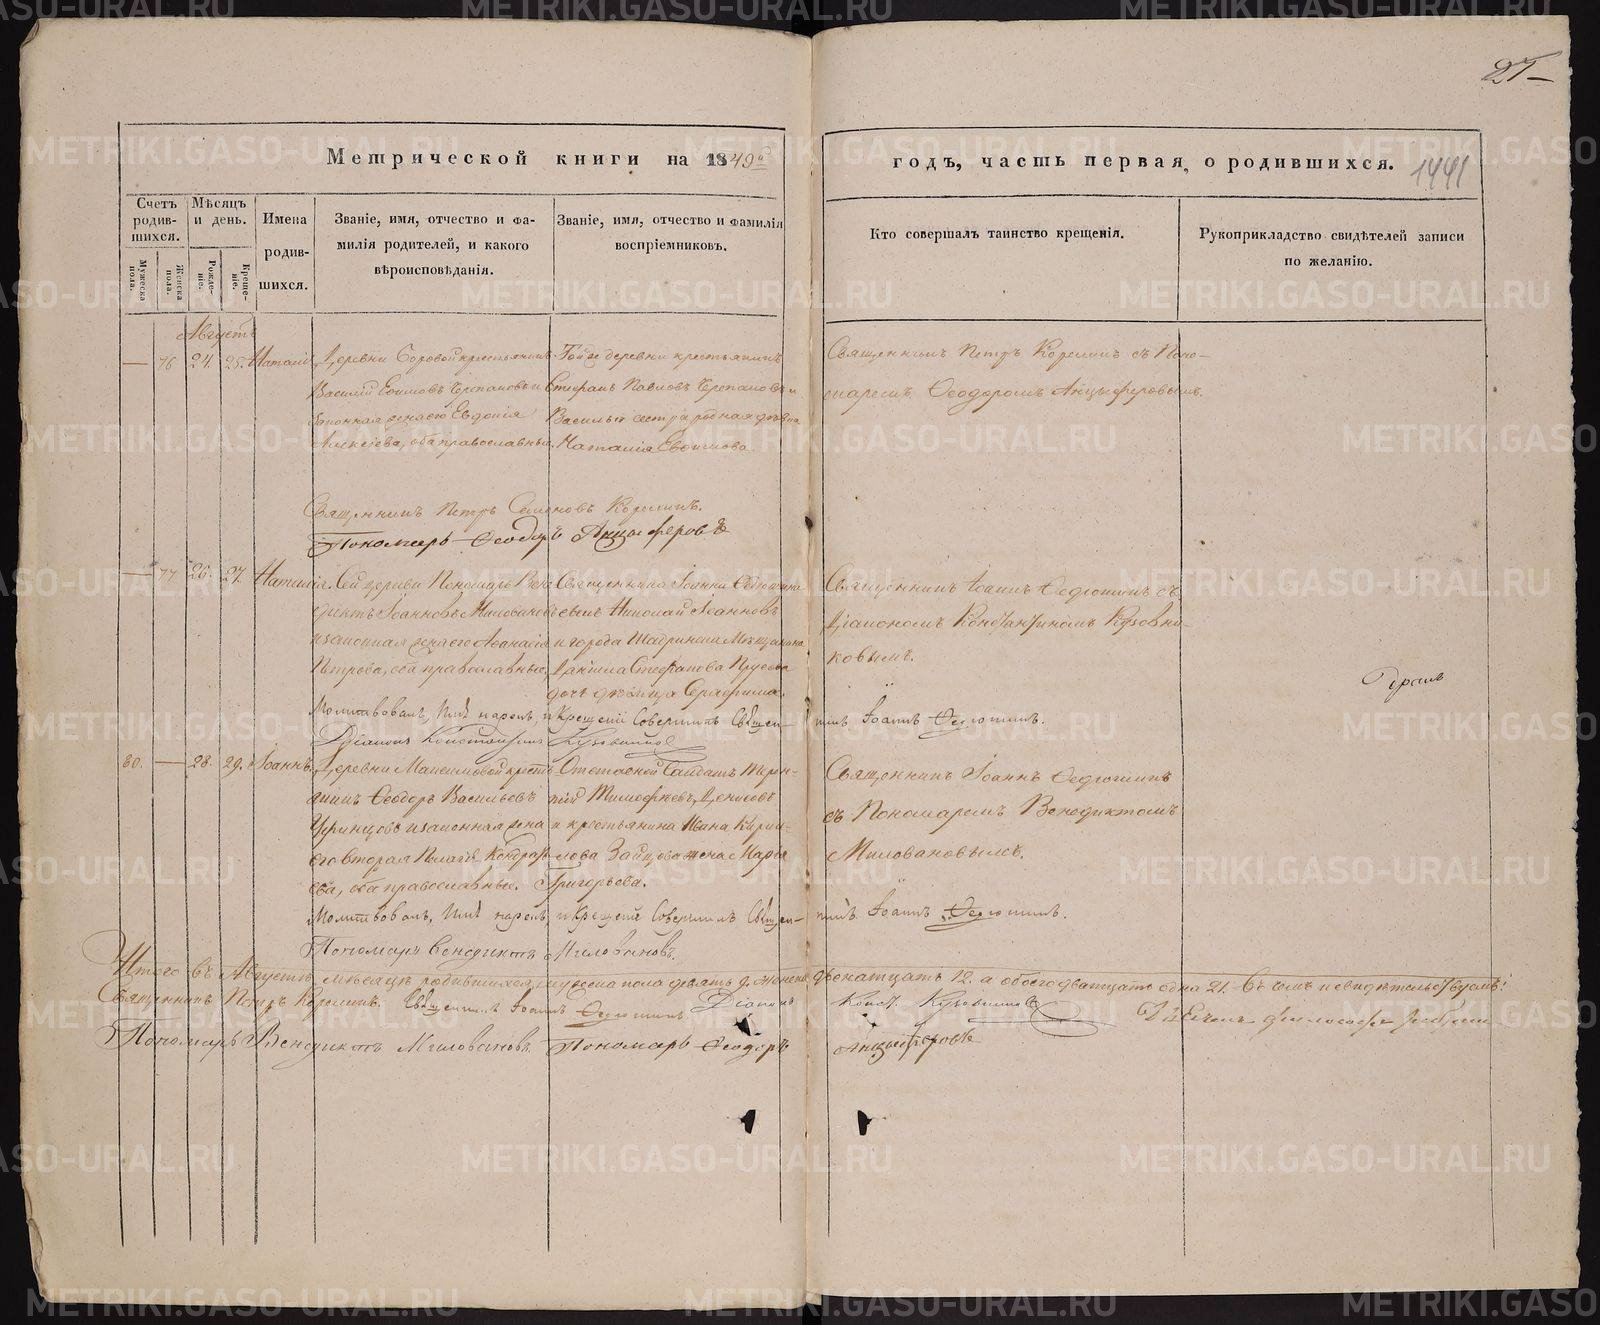 27
Метрической книги на 1849й годъ, часть первая, о родившихся.
1441
Счетъ родив-
шихся.
Мужеска пола.
Женска пола.
Мѣсяцъ и день.
Рожде-
ніе.
Креще-
ніе.
Имена
родив-
шихся.
Званіе, имя, отчество и фа-
милія родителей, и какого
вѣроисповѣданія.
Званіе, имя, отчество и фамилія
воспріемниковъ.
Кто совершалъ таинство крещенія.
Рукоприкладство свидѣтелей записи
по желанію.
Августъ
— 76 24. 25. Наталія
Деревни Боровой крестьянинъ
Василій Ефимовъ Черепановъ и
законная жена его Евдокія
Алексіева, оба православные.
Той же деревни крестьянинъ
Стефанъ Павловъ Черепановъ и
Василья сестра родная дѣвица
Наталія Евфимова
Священникъ Петръ Корелинъ съ Поно-
маремъ Ѳеодоромъ Анцыферовымъ.
Священникъ Петръ Семеновъ Корелинъ.
Пономарь Ѳеодоръ Анцыферовъ
— 77 26. 27. Наталія.
Сей церкви Пономарь Вене-
диктъ Іоанновъ Миловановъ
и законная жена его Аѳанасія
Петрова, оба православные.
Священника Іоанна Ѳедюшина
сынъ Николай Іоанновъ
и города Шадринска Мѣщанина
Даніила Стефанова Прусова
дочь дѣвица Серафима.
Священникъ Іоаннъ Ѳедюшинъ съ
Діакономъ Константиномъ Кузовни-
ковымъ.
Молитвовалъ, Имя нарекъ, и Крещеніе Совершилъ Священ-
никъ Іоаннъ Ѳедюшинъ.
Діаконъ Константинъ Кузовников
80. — 28. 29. Іоаннъ.
Деревни Максимовой кресть-
янинъ Ѳеодоръ Васильевъ
Уфинцовъ и законная жена
его вторая Пелагія Кондрать-
ева, оба православные.
Отставной Солдатъ Терен-
тій Тимофѣевъ Денисовъ
и крестьянина Ивана Кирил-
лова Зайцова жена Марья
Григорьева.
Священникъ Іоаннъ Ѳедюшинъ
съ Пономаремъ Венедиктомъ
Миловановымъ.
Молитвовалъ, Имя нарекъ, и Крещеніе Совершилъ Священ-
никъ Іоаннъ Ѳедюшинъ.
Пономарь Венедиктъ Миловановъ.
Итого въ Августѣ мѣсяцѣ родившихся мужеска пола девять 9. женска двенатцать 12. а обоего дватцать одна 21. Въ чемъ и свидѣтельствуемъ:
Священникъ Петръ Корелинъ. Священникъ Іоаннъ Ѳедюшинъ. Діаконъ Конст. Кузовниковъ
Пономарь Венедиктъ Миловановъ. Пономарь Ѳеодоръ Анцыферовъ
METRIKI.GASO-URAL.RU